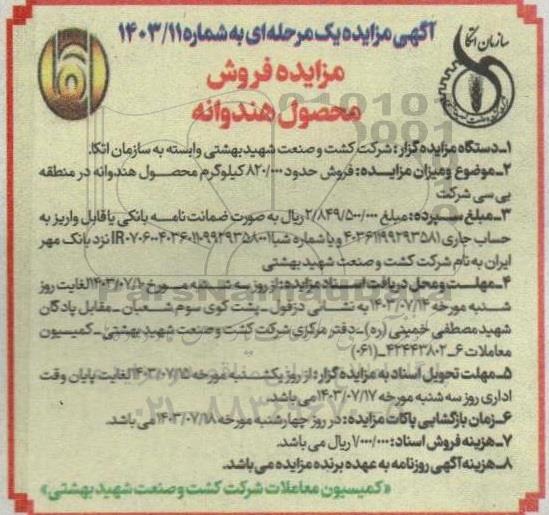 سازمان اتکا
آگهی مزایده یک مرحله‌ای به شماره ۱۴۰۳/۱۱
مزایده فروش
محصول هندوانه
۱ـ دستگاه مزایده گزار: شرکت کشت و صنعت شهید بهشتی وابسته به سازمان اتکا.
۲ـ موضوع و میزان مزایـــده: فروش حدود ۸۲۰/۰۰۰ کیلوگرم محصول هندوانه در منطقه
بی سی شرکت
۳ـ مبلغ سـپـرده: مبلغ ۲/۸۴۹/۵۰۰/۰۰۰ ریال به صورت ضمانت نامه بانکی یا قابل واریز به
حساب جاری ۴۰۳۶۱۱۹۹۲۹۳۵۸۱ و یا شماره شبا IR۰۷۰۶۰۰۴۰۳۶۰۱۱۰۹۹۲۹۳۵۸۰۰۱ نزد بانک مهر
ایران به نام شرکت کشت و صنعت شهید بهشتی
۴ـ مهلت و محل دریافت اسـناد مزایده: از روز سه شنبه مورخ ۱۴۰۳/۰۷/۱۰ لغایت روز
شنبه مورخه ۱۴۰۳/۰۷/۱۴ به نشانی دزفول ـ پشت کوی سوم شعبان ـ مقابل پادگان
شهید مصطفی خمینی (ره) ـ دفتر مرکزی شرکت کشت و صنعت شهید بهشتی ـ کمیسیون
معاملات ۶ ـ ۴۲۴۴۳۸۰۲ (۰۶۱)
۵ـ مهلت تحویل اسناد به مزایده گزار: از روز یکشنبه مورخه ۱۴۰۳/۰۷/۱۵ لغایت پایان وقت
اداری روز سه شنبه مورخه ۱۴۰۳/۰۷/۱۷ می باشد.
۶ـ زمان بازگشایی پاکات مزایده: در روز چهارشنبه مورخه ۱۴۰۳/۰۷/۱۸ می باشد.
۷ـ هزینه فروش اسناد: ۷/۰۰۰/۰۰۰ ریال می باشد.
۸ـ هزینه آگهی روزنامه به عهده برنده مزایده می باشد.
«کمیسیون معاملات شرکت کشت و صنعت شهید بهشتی»